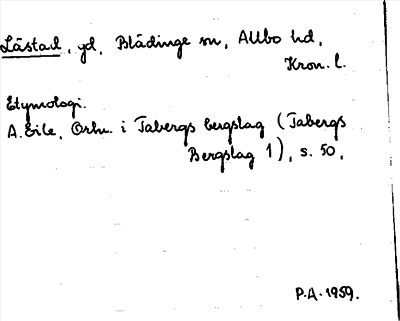 Lästad, gd, Blädinge sn, Allbo hd,
Kron. l.
Etymologi.
A. Eile, Ortn. i Tabergs bergslag (Tabergs
Bergslag 1), s. 50.
P.A. 1959.